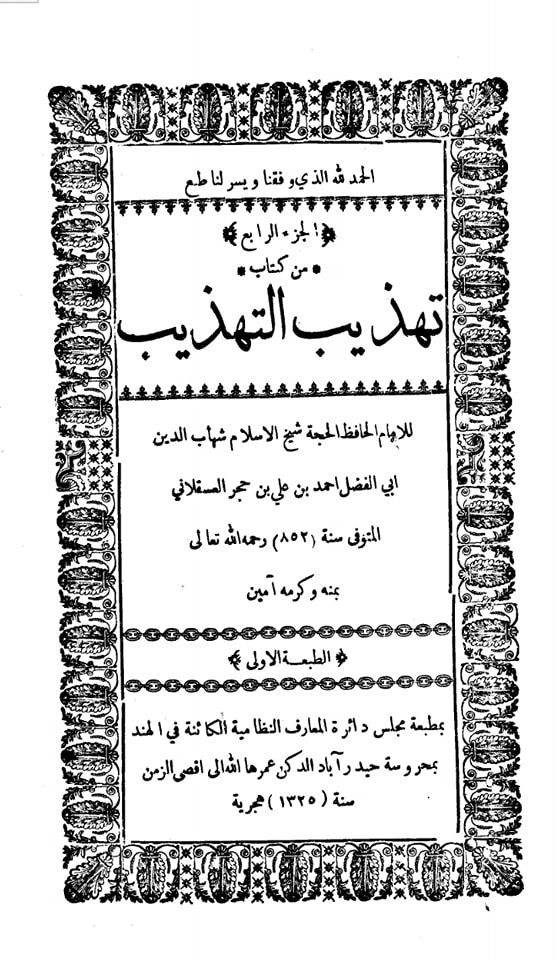 الحمد لله الذي وفقنا ويسر لنا طبع
الجزء الرابع
من كتاب
تهذيب التهذيب
للامام الحافظ الحجة شيخ الاسلام شهاب الدين
ابي الفضل احمد بن علي بن حجر العسقلاني
المتوفى سنة (٨٥٢) رحمه الله تعالى
بمنه وكرمه آمين
الطبعة الاولى
بمطبعة مجلس دائرة المعارف النظامية الكائنة في الهند
بمحروسة حيدر آباد الدكن عمرها الله الى اقصى الزمن
سنة (١٣٢٥) هجرية